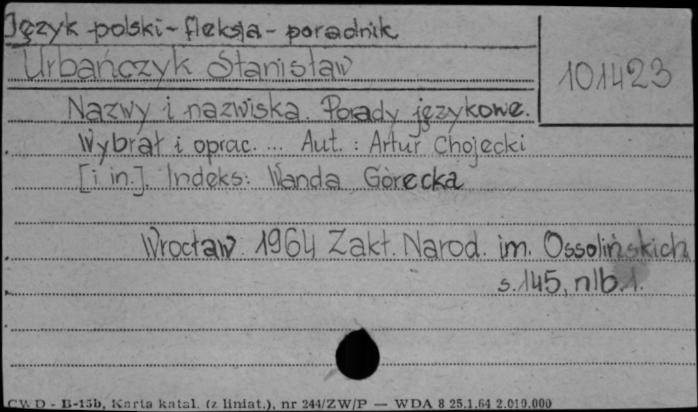 Język polski - fleksja - poradnik
Urbańczyk Stanisław
101423
Nazwy i nazwiska. Porady językowe.
Wybrał i oprac. ... Aut. : Artur Chojecki
[i in.]. Indeks: Wanda Górecka
Wrocław 1964 Zakł. Narod. im. Ossolińskich
s. 145, nlb. 1.
CWD - B-15b, Karta katal. (z liniat.), nr 244/ZW/P — WDA 8 25.1.64 2.010.000